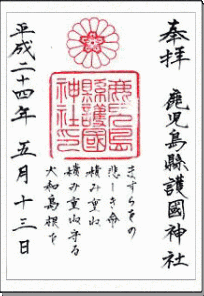 奉拝
鹿児島縣護國神社
鹿兒島
縣護國
神社之印
ますらをの
悲しき命
積み重ね
積み重ね守る
大和島根を
平成二十四年五月十三日